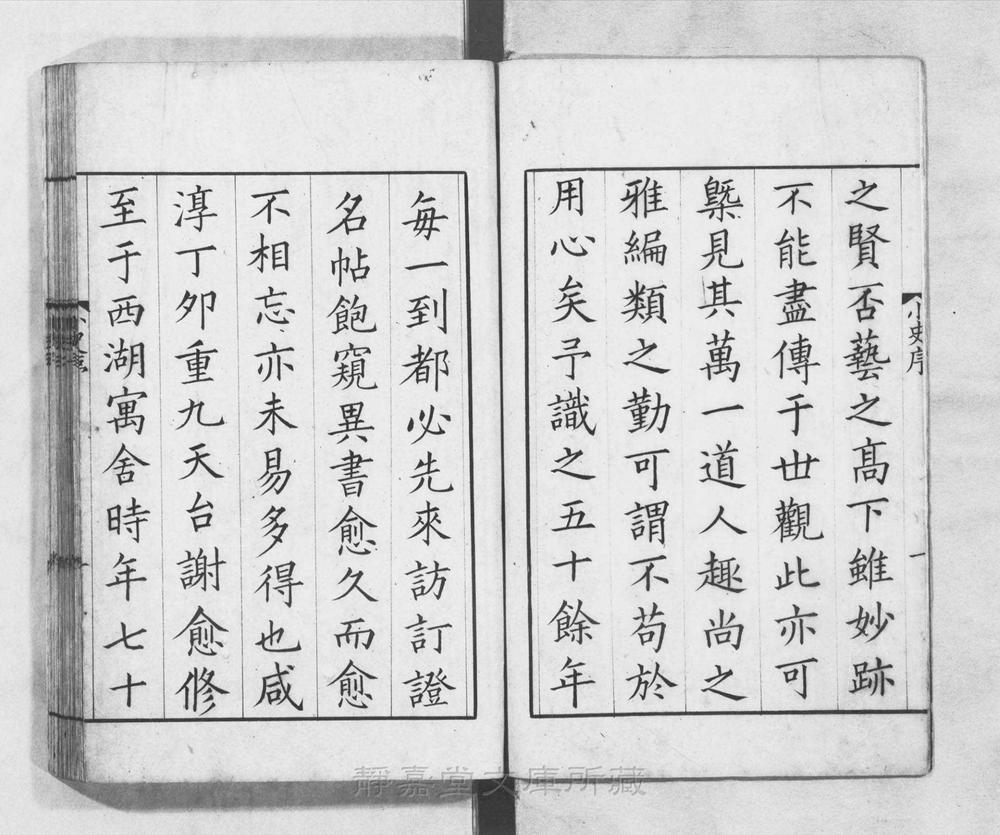 小史序
一
之賢否藝之高下雖妙跡
不能盡傳于世觀此亦可
槩見其萬一道人趣尚之
雅編類之勤可謂不苟於
用心矣予識之五十餘年
每一到都必先來訪訂證
名帖飽窺異書愈久而愈
不相忘亦未易多得也咸
淳丁夘重九天台謝愈修
至于西湖寓舍時年七十
靜嘉堂文庫所藏